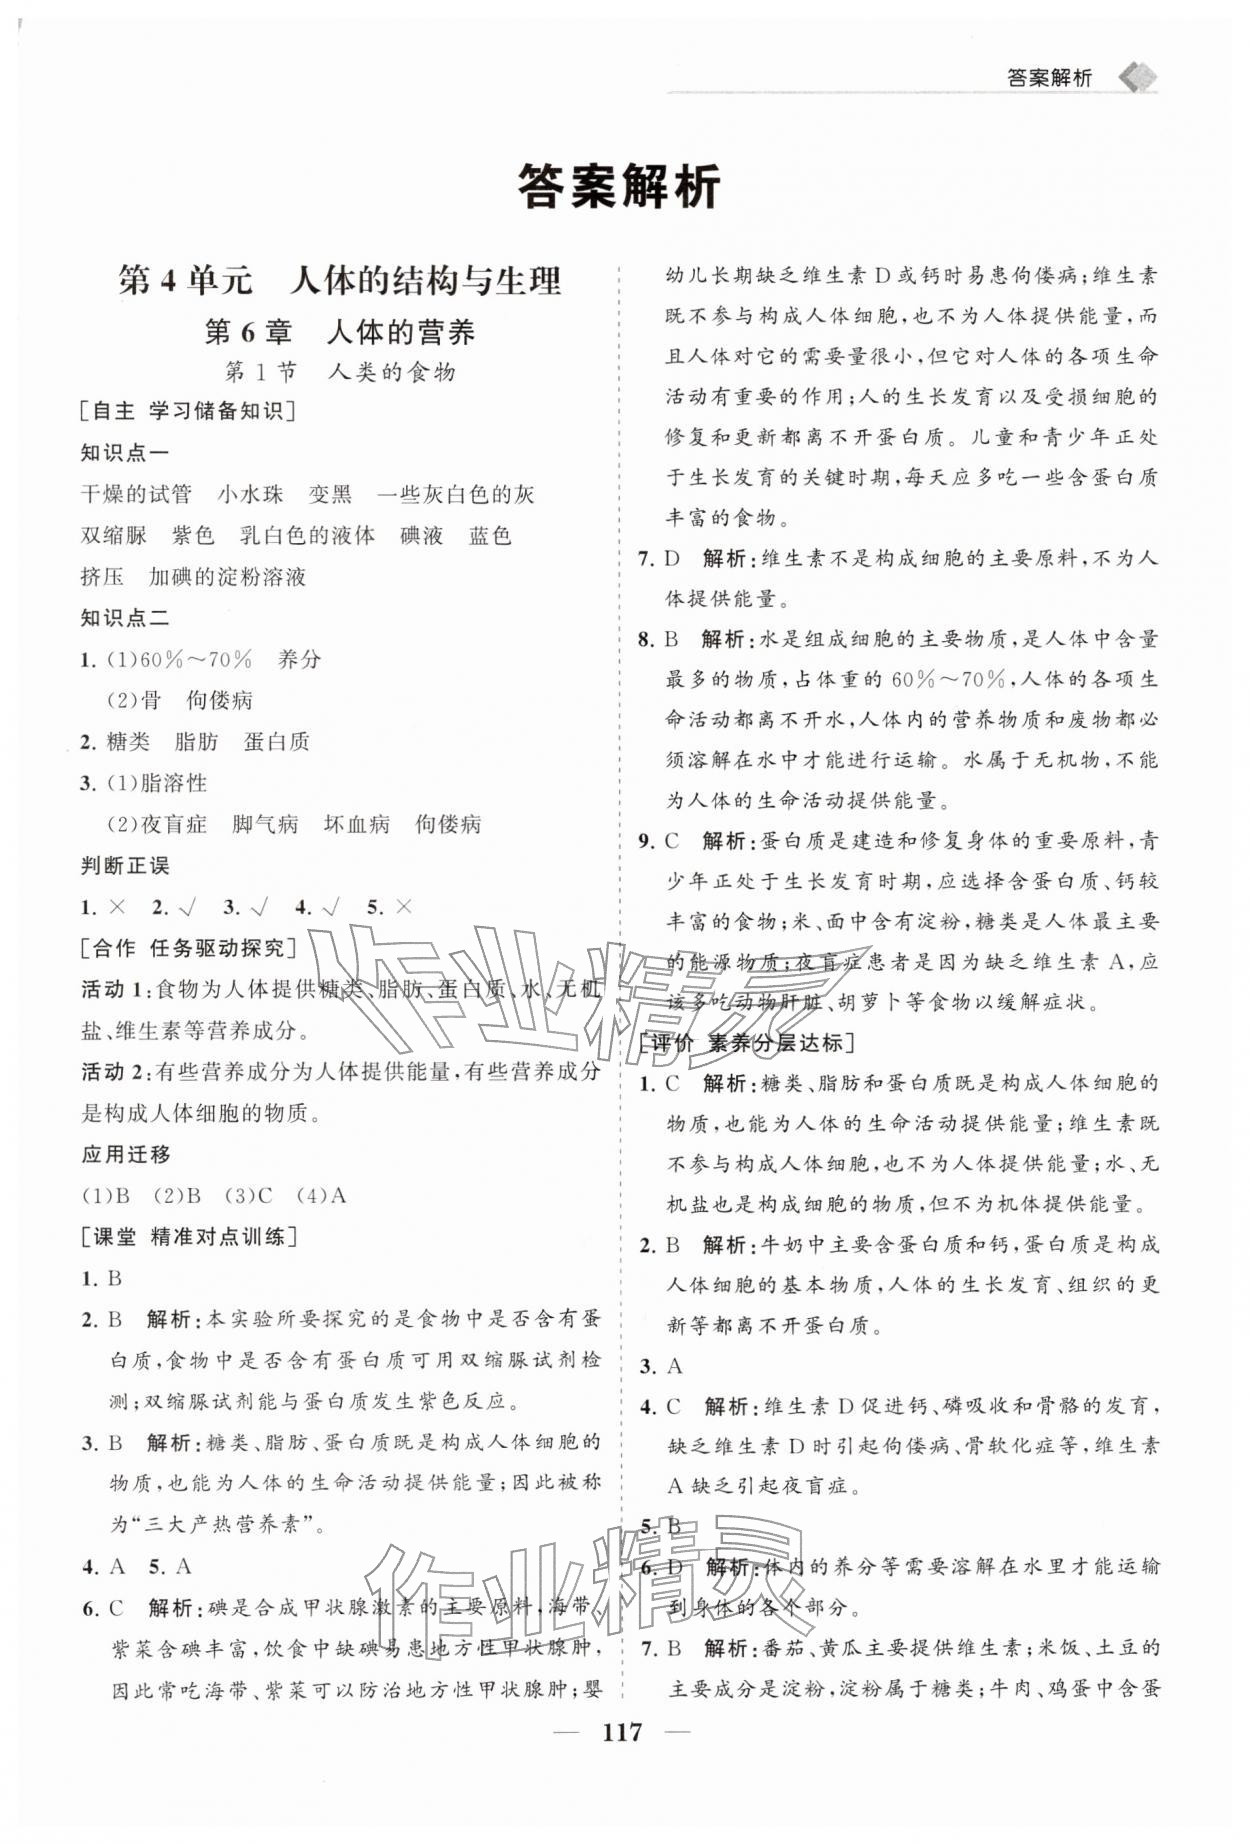 答案解析
答案解析
第 4 单元　人体的结构与生理
第 6 章　人体的营养
第 1 节　人类的食物
[自主 学习储备知识]
知识点一
干燥的试管　小水珠　变黑　一些灰白色的灰
双缩脲　紫色　乳白色的液体　碘液　蓝色
挤压　加碘的淀粉溶液
知识点二
1. (1)60%～70%　养分
(2)骨　佝偻病
2. 糖类　脂肪　蛋白质
3. (1)脂溶性
(2)夜盲症　脚气病　坏血病　佝偻病
判断正误
1. ×　2. √　3. √　4. √　5. ×
[合作 任务驱动探究]
活动 1:食物为人体提供糖类、脂肪、蛋白质、水、无机
盐、维生素等营养成分。
活动 2:有些营养成分为人体提供能量,有些营养成分
是构成人体细胞的物质。
应用迁移
(1)B　(2)B　(3)C　(4)A
[课堂 精准对点训练]
1. B
2. B　解析:本实验所要探究的是食物中是否含有蛋
白质,食物中是否含有蛋白质可用双缩脲试剂检
测;双缩脲试剂能与蛋白质发生紫色反应。
3. B　解析:糖类、脂肪、蛋白质既是构成人体细胞的
物质,也能为人体的生命活动提供能量;因此被称
为“三大产热营养素”。
4. A　5. A
6. C　解析:碘是合成甲状腺激素的主要原料,海带、
紫菜含碘丰富,饮食中缺碘易患地方性甲状腺肿,
因此常吃海带、紫菜可以防治地方性甲状腺肿;婴
幼儿长期缺乏维生素 D 或钙时易患佝偻病;维生素
既不参与构成人体细胞,也不为人体提供能量,而
且人体对它的需要量很小,但它对人体的各项生命
活动有重要的作用;人的生长发育以及受损细胞的
修复和更新都离不开蛋白质。儿童和青少年正处
于生长发育的关键时期,每天应多吃一些含蛋白质
丰富的食物。
7. D　解析:维生素不是构成细胞的主要原料,不为人
体提供能量。
8. B　解析:水是组成细胞的主要物质,是人体中含量
最多的物质,占体重的 60%～70%,人体的各项生
命活动都离不开水,人体内的营养物质和废物都必
须溶解在水中才能进行运输。水属于无机物,不能
为人体的生命活动提供能量。
9. C　解析:蛋白质是建造和修复身体的重要原料,青
少年正处于生长发育时期,应选择含蛋白质、钙较
丰富的食物;米、面中含有淀粉,糖类是人体最主要
的能源物质;夜盲症患者是因为缺乏维生素 A,应
该多吃动物肝脏、胡萝卜等食物以缓解症状。
[评价 素养分层达标]
1. C　解析:糖类、脂肪和蛋白质既是构成人体细胞的
物质,也能为人体的生命活动提供能量;维生素既
不参与构成人体细胞,也不为人体提供能量;水、无
机盐也是构成细胞的物质,但不为机体提供能量。
2. B　解析:牛奶中主要含蛋白质和钙,蛋白质是构成
人体细胞的基本物质,人体的生长发育、组织的更
新等都离不开蛋白质。
3. A
4. C　解析:维生素 D 促进钙、磷吸收和骨骼的发育,
缺乏维生素 D 时引起佝偻病、骨软化症等,维生素
A 缺乏引起夜盲症。
5. B
6. D　解析:体内的养分等需要溶解在水里才能运输
到身体的各个部分。
7. B　解析:番茄、黄瓜主要提供维生素;米饭、土豆的
主要成分是淀粉,淀粉属于糖类;牛肉、鸡蛋中含蛋
作业精灵
作业精灵
117